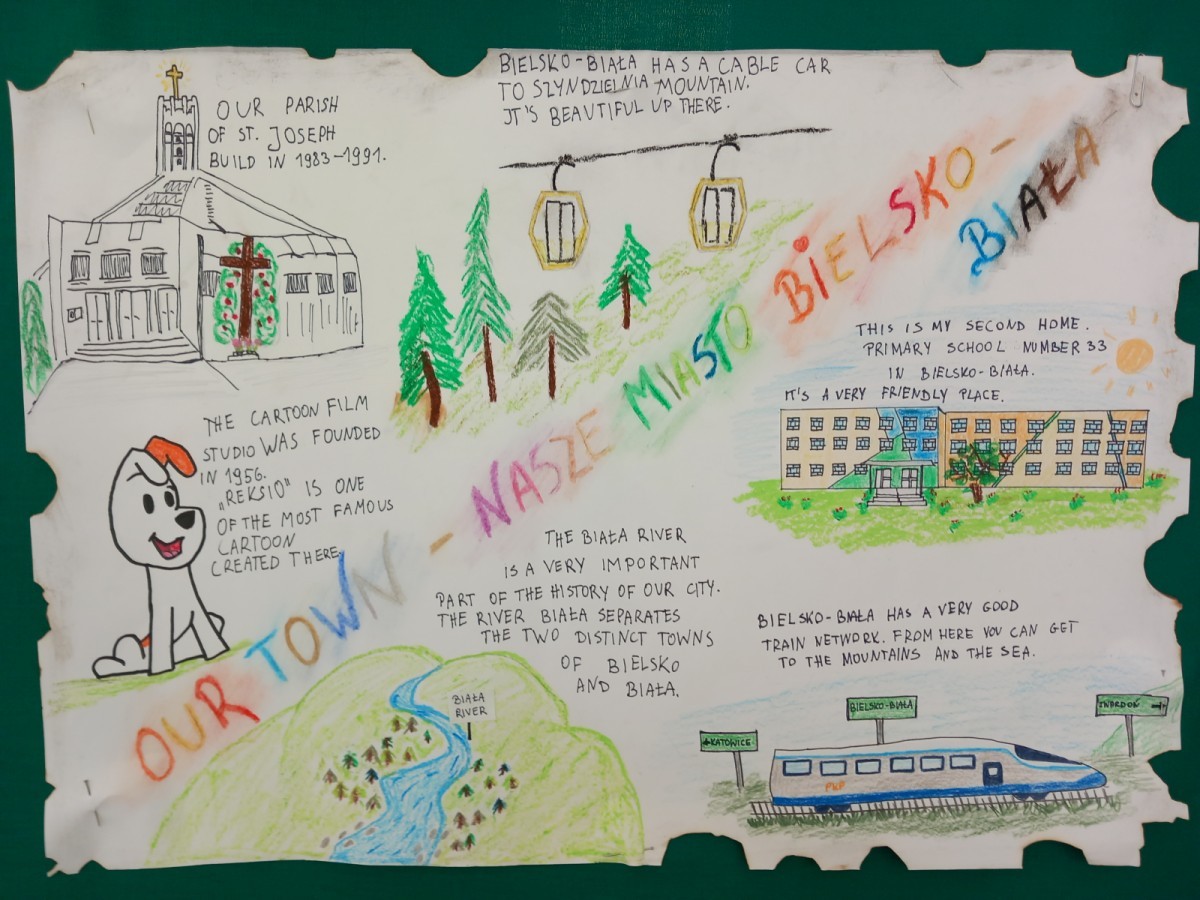 OUR PARISH
OF ST. JOSEPH
BUILD IN 1983-1991.
BIELSKO-BIAŁA HAS A CABLE CAR
TO SZYNDZIELNIA MOUNTAIN.
IT'S BEAUTIFUL UP THERE.
OUR TOWN - NASZE MIASTO BIELSKO-
BIAŁA
THIS IS MY SECOND HOME.
PRIMARY SCHOOL NUMBER 33
IN BIELSKO-BIAŁA.
IT'S A VERY FRIENDLY PLACE.
THE CARTOON FILM
STUDIO WAS FOUNDED
IN 1956.
„REKSIO" IS ONE
OF THE MOST FAMOUS
CARTOON
CREATED THERE.
THE BIAŁA RIVER
IS A VERY IMPORTANT
PART OF THE HISTORY OF OUR CITY.
THE RIVER BIAŁA SEPARATES
THE TWO DISTINCT TOWNS
OF BIELSKO
AND BIAŁA.
BIAŁA
RIVER
BIELSKO-BIAŁA HAS A VERY GOOD
TRAIN NETWORK. FROM HERE YOU CAN GET
TO THE MOUNTAINS AND THE SEA.
←KATOWICE
BIELSKO-BIAŁA
ZWARDOŃ →
PKP